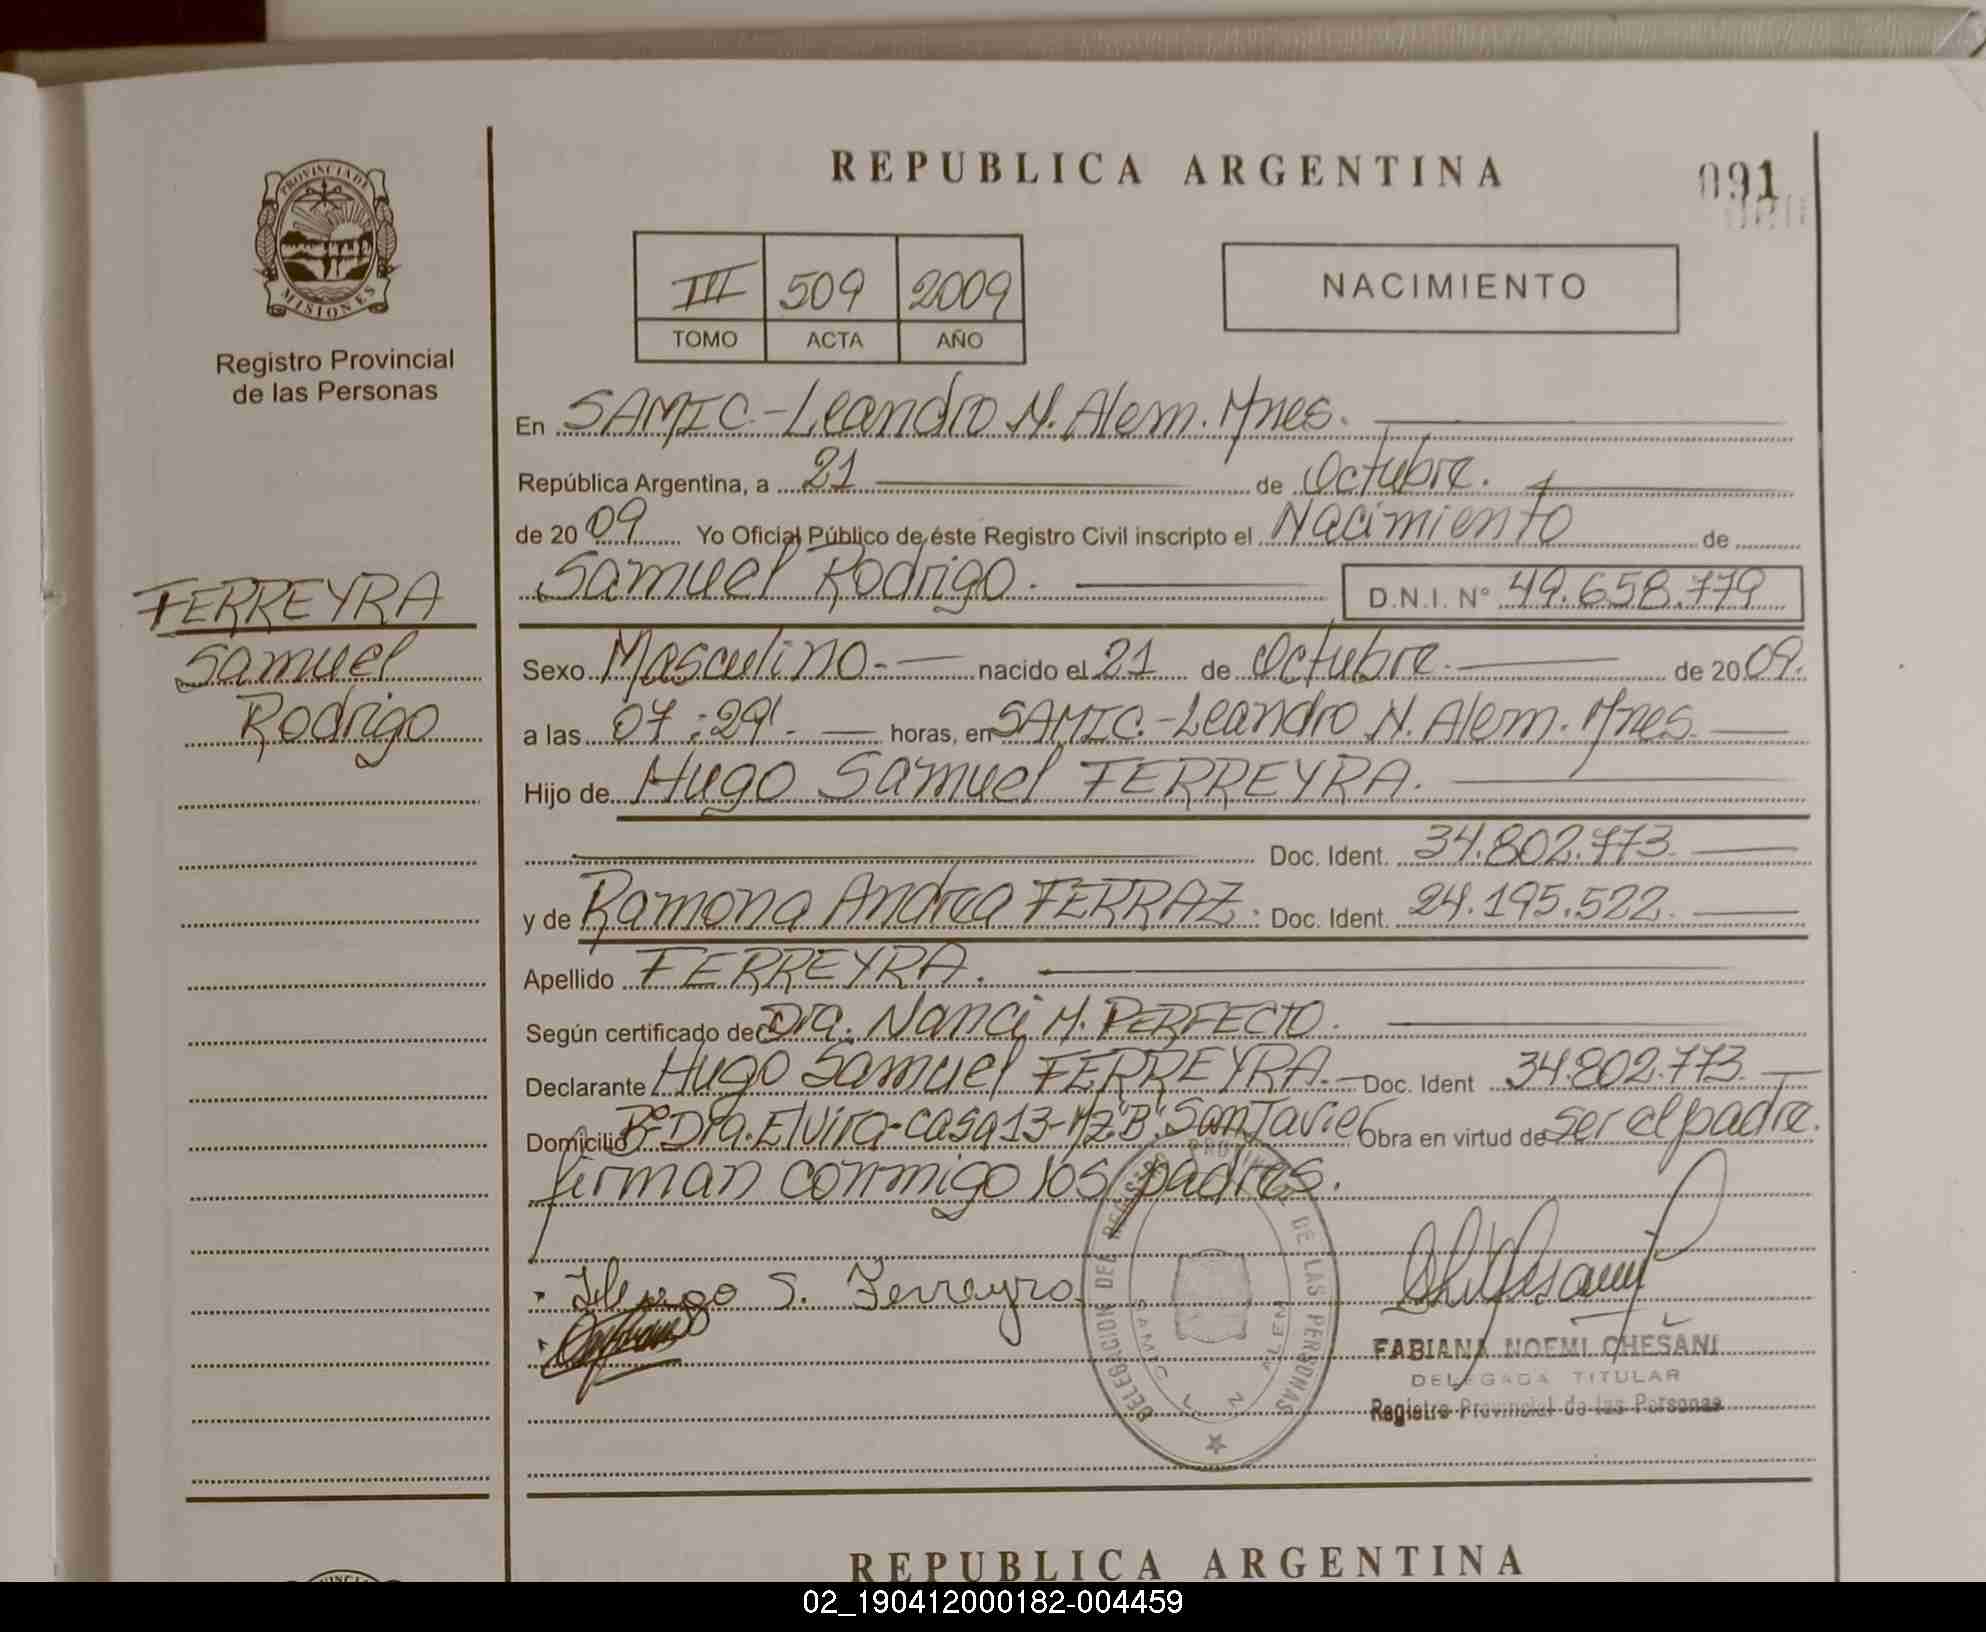 REPUBLICA ARGENTINA
091
PROVINCIA DE
MISIONES
Registro Provincial
de las Personas
III 509 2009
TOMO ACTA AÑO
NACIMIENTO
En SAMIC-Leandro N. Alem. Mnes.
República Argentina, a 21 de Octubre.
de 2009 Yo Oficial Público de éste Registro Civil inscripto el Nacimiento de
Samuel Rodrigo. D.N.I. N° 49.658.779
FERREYRA
Samuel
Rodrigo
Sexo Masculino.- nacido el 21 de Octubre. de 2009.
a las 07:29'. horas, en SAMIC.-Leandro N. Alem. Mnes.
Hijo de Hugo Samuel FERREYRA.
Doc. Ident. 34.802.773.
y de Ramona Andrea FERRAZ. Doc. Ident. 24.195.522.
Apellido FERREYRA.
Según certificado de Dra. Nanci M. PERFECTO.
Declarante Hugo Samuel FERREYRA.- Doc. Ident 34.802.773.
Domicilio B° Dra. Elvira-casa 13-Mz"B". San Javier Obra en virtud de ser el padre.
firman conmigo los padres.
Hugo S. Ferreyra
DELEGACION DEL REGISTRO PROVINCIAL DE LAS PERSONAS
SAMIC L N ALEM
FABIANA NOEMI CHESANI
DELEGADA TITULAR
Registro Provincial de las Personas
REPUBLICA ARGENTINA
02_190412000182-004459